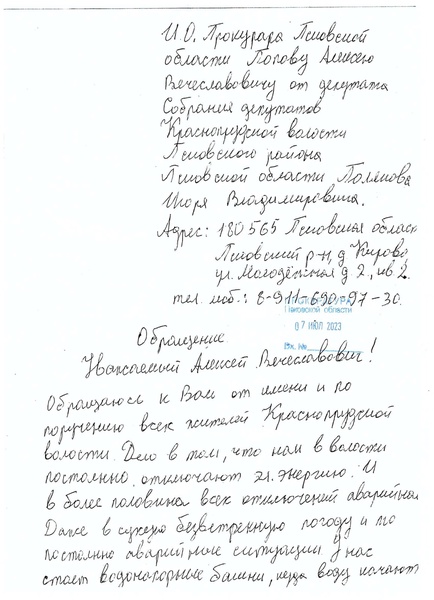 И.О. Прокурора Псковской
области Попову Алексею
Вячеславовичу от депутата
Собрания депутатов
Краснопрудской волости
Псковского района
Псковской области Полякова
Игоря Владимировича.
Адрес: 180565 Псковская област
Псковский р-н, д Кирово,
ул. Молодёжная д. 2, кв 2.
тел. моб.: 8-911-690-97-30.
ПРОКУРАТУРА
Псковской области
07 ИЮЛ 2023
Вх. №
Обращение
Уважаемый Алексей Вячеславович!
Обращаюсь к Вам от имени и по
поручению всех жителей Краснопрудской
волости. Дело в том, что нам в волости
постоянно отключают эл. энергию. И
в более половина всех отключений аварийная
Даже в сухую безветренную погоду и то
постоянно аварийные ситуации У нас
стоят водонапорные башни, воду качают